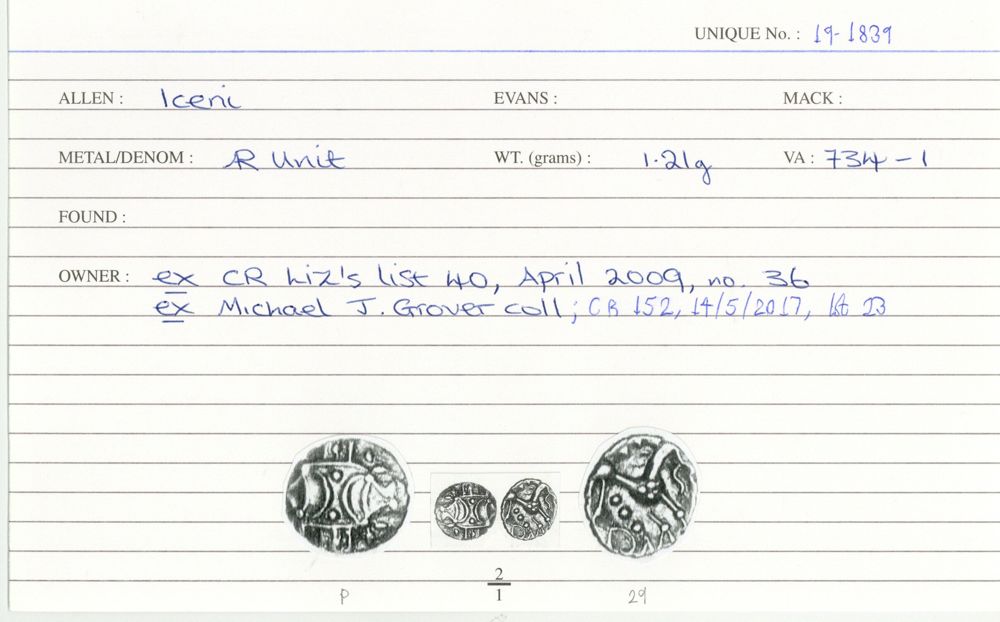 UNIQUE No. : 19-1839
ALLEN : Iceni EVANS : MACK :
METAL/DENOM : AR Unit WT. (grams) : 1.21g VA : 734-1
FOUND :
OWNER : ex CR Liz's list 40, April 2009, no. 36
ex Michael J. Grover coll; CR 152, 14/5/2017, lot 23
2
P 1 29